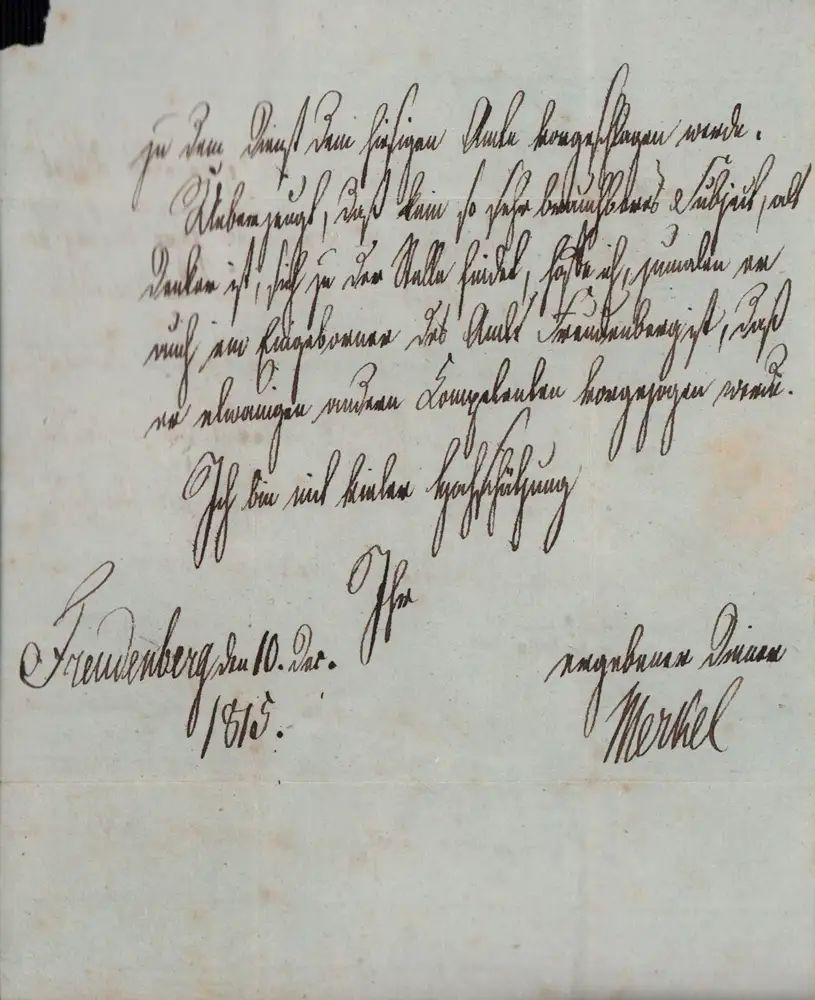 zu dem Dienst dem hiesigen Amte vorgeschlagen werde.
Ueberzeugt, daß kein so sehr brauchbares Subject, als
Denker ist, sich zu der Stelle findet, hoffe ich, zumalen er
auch ein Eingeborner des Amts Freudenberg ist, daß
er etwaigen andern Competenten vorgezogen werde.
Ich bin mit vieler Hochschätzung
Ihr
Freudenberg den 10. Dec.
1815.
ergebener Diener
Merkel